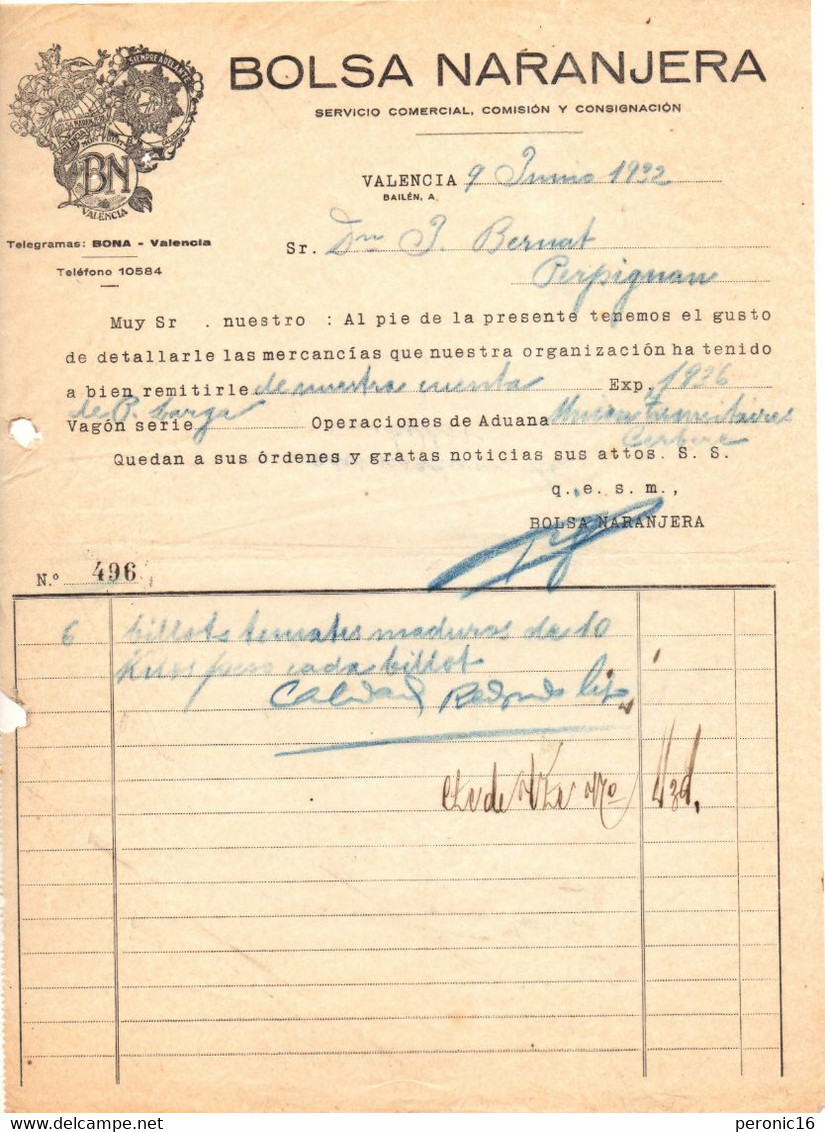 SIEMPRE ADELANTE
BOLSA NARANJERA
SERVICIO COMERCIAL, COMISIÓN Y CONSIGNACIÓN
BN
VALENCIA
VALENCIA 9 Junio 1932
BAILÉN, A
Telegramas: BONA - Valencia
Teléfono 10584
Sr. Dn J. Bernat
Perpignan
Muy Sr. nuestro: Al pie de la presente tenemos el gusto
de detallarle las mercancías que nuestra organización ha tenido
a bien remitirle de nuestra cuenta Exp. 1926
Vagón serie de P. Carga Operaciones de Aduana Union Transitaires
Cerbere
Quedan a sus órdenes y gratas noticias sus attos. S. S.
q. e. s. m.,
BOLSA NARANJERA
N.º 496
6 billots tomates maduros de 10
Kilos peso cada billot
Calidad Redondo liso
peronic16